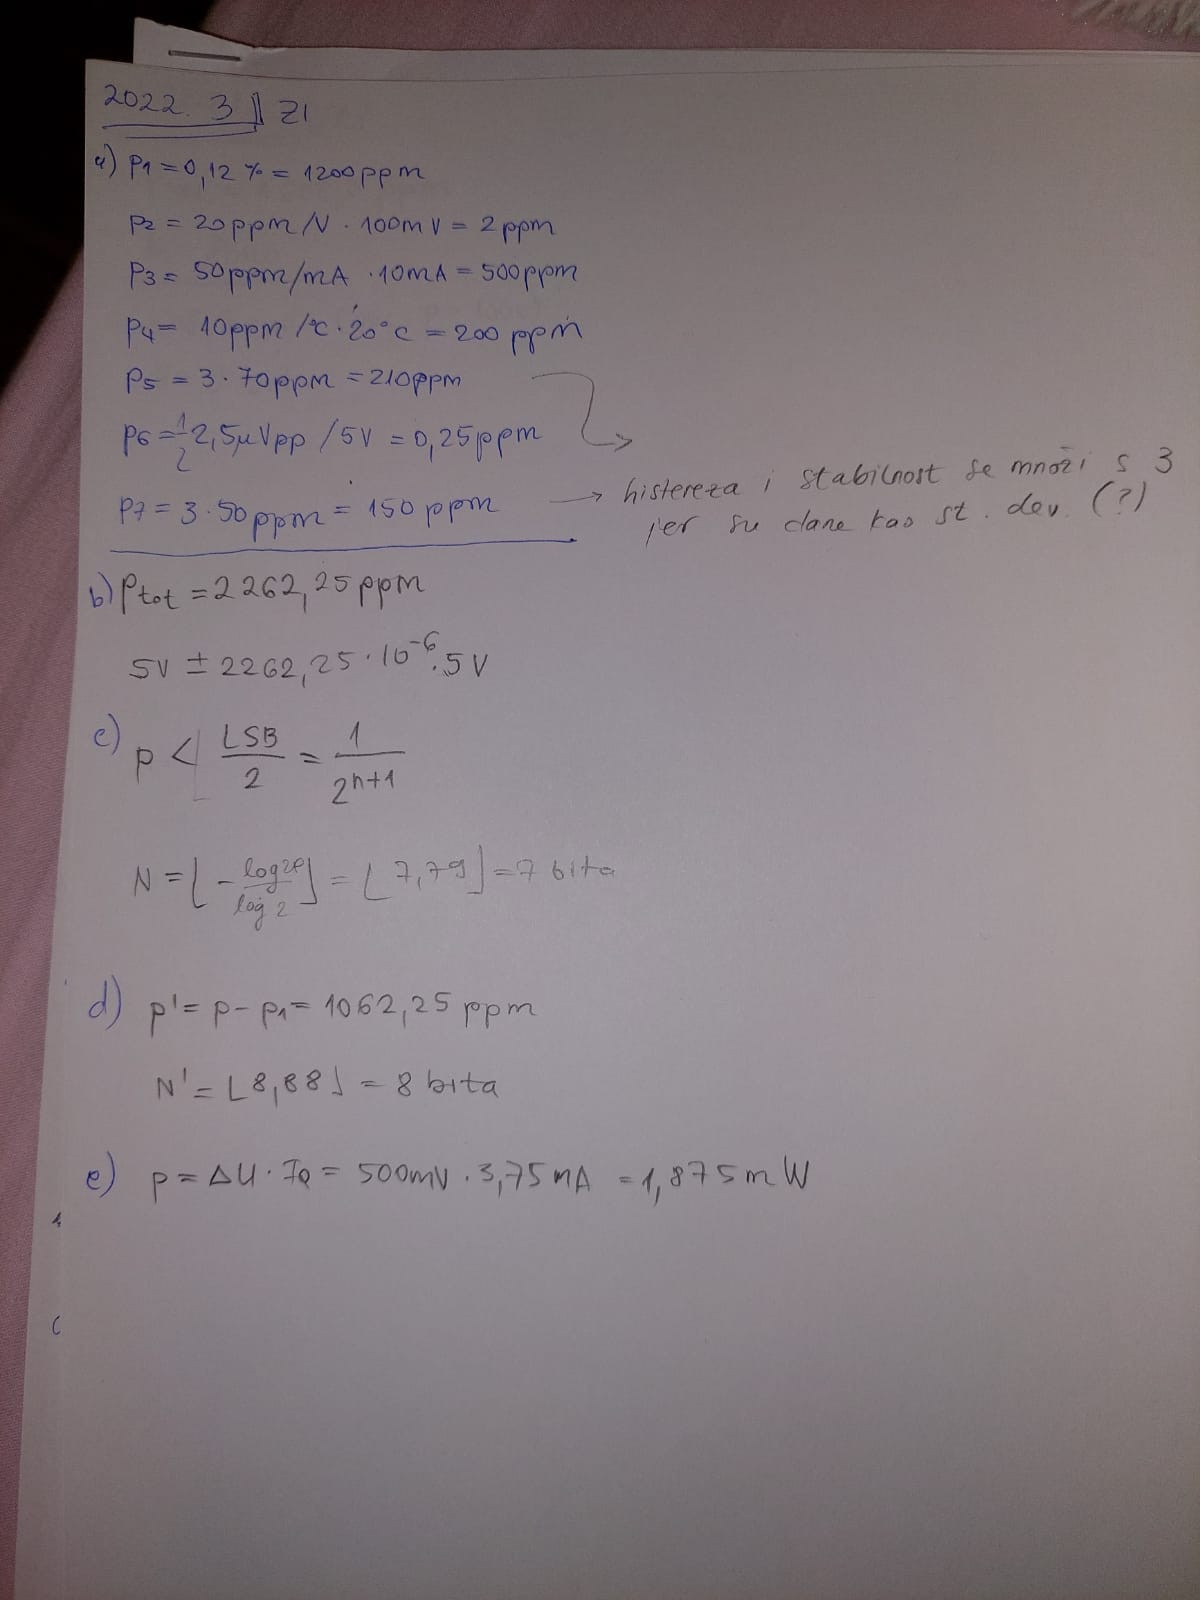 2022. 3 || ZI
a) P1 = 0,12 % = 1200 ppm
P2 = 20 ppm/V · 100 mV = 2 ppm
P3 = 50 ppm/mA · 10 mA = 500 ppm
P4 = 10 ppm /°C · 20°C = 200 ppm
P5 = 3 · 70 ppm = 210 ppm
P6 = 1/2 2,5 μVpp / 5V = 0,25 ppm
P7 = 3 · 50 ppm = 150 ppm → histereza i stabilnost se množi s 3
jer su dane kao st. dev. (?)
b) Ptot = 2262,25 ppm
5V ± 2262,25 · 10^-6 · 5 V
c) p < LSB/2 = 1/2^n+1
N = ⌊ - log2p / log 2 ⌋ = ⌊ 7,79 ⌋ = 7 bita
d) p' = p - p1 = 1062,25 ppm
N' = ⌊ 8,88 ⌋ = 8 bita
e) p = ΔU · IQ = 500 mV · 3,75 mA = 1,875 mW